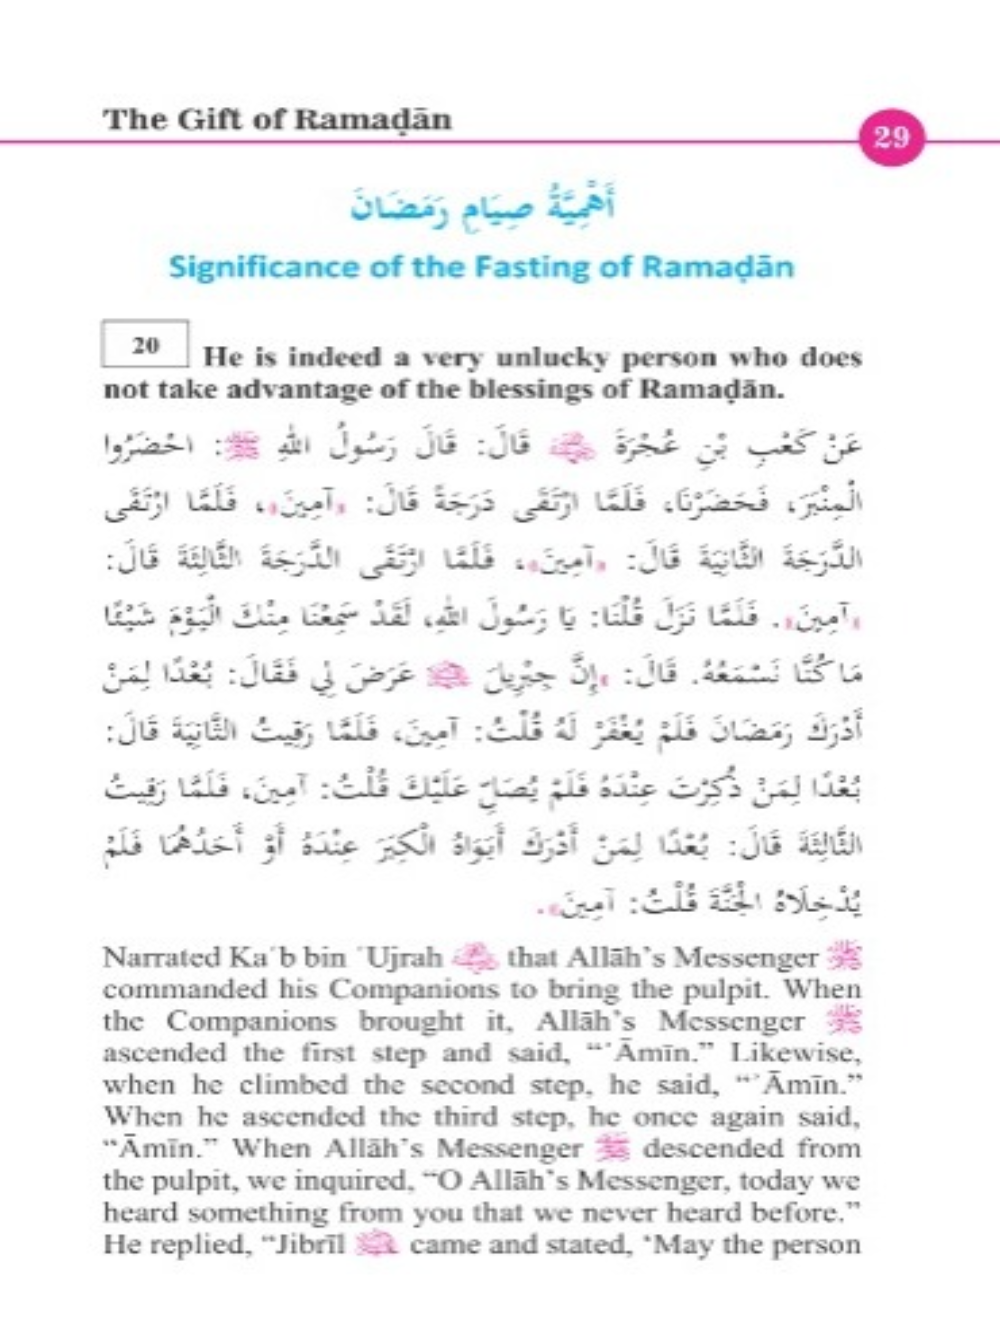 The Gift of Ramaḍān
29
أَهَمِّيَّةُ صِيَامِ رَمَضَانَ
Significance of the Fasting of Ramaḍān
20 He is indeed a very unlucky person who does
not take advantage of the blessings of Ramaḍān.
عَنْ كَعْبِ بْنِ عُجْرَةَ قَالَ: قَالَ رَسُولُ اللهِ ﷺ: احْضَرُوا
الْمِنْبَرَ، فَحَضَرْنَا، فَلَمَّا ارْتَقَى دَرَجَةً قَالَ: «آمِينَ»، فَلَمَّا ارْتَقَى
الدَّرَجَةَ الثَّانِيَةَ قَالَ: «آمِينَ»، فَلَمَّا ارْتَقَى الدَّرَجَةَ الثَّالِثَةَ قَالَ:
«آمِينَ». فَلَمَّا نَزَلَ قُلْنَا: يَا رَسُولَ اللهِ، لَقَدْ سَمِعْنَا مِنْكَ الْيَوْمَ شَيْئًا
مَا كُنَّا نَسْمَعُهُ. قَالَ: «إِنَّ جِبْرِيلَ عَرَضَ لِي فَقَالَ: بُعْدًا لِمَنْ
أَدْرَكَ رَمَضَانَ فَلَمْ يُغْفَرْ لَهُ قُلْتُ: آمِينَ، فَلَمَّا رَقِيتُ الثَّانِيَةَ قَالَ:
بُعْدًا لِمَنْ ذُكِرْتَ عِنْدَهُ فَلَمْ يُصَلِّ عَلَيْكَ قُلْتُ: آمِينَ، فَلَمَّا رَقِيتُ
الثَّالِثَةَ قَالَ: بُعْدًا لِمَنْ أَدْرَكَ أَبَوَاهُ الْكِبَرَ عِنْدَهُ أَوْ أَحَدُهُمَا فَلَمْ
يُدْخِلَاهُ الْجَنَّةَ قُلْتُ: آمِينَ».
Narrated Kaʿb bin ʿUjrah that Allāh’s Messenger ﷺ
commanded his Companions to bring the pulpit. When
the Companions brought it, Allāh’s Messenger ﷺ
ascended the first step and said, “ʾĀmīn.” Likewise,
when he climbed the second step, he said, “ʾĀmīn.”
When he ascended the third step, he once again said,
“Āmīn.” When Allāh’s Messenger ﷺ descended from
the pulpit, we inquired, “O Allāh’s Messenger, today we
heard something from you that we never heard before.”
He replied, “Jibrīl came and stated, ‘May the person